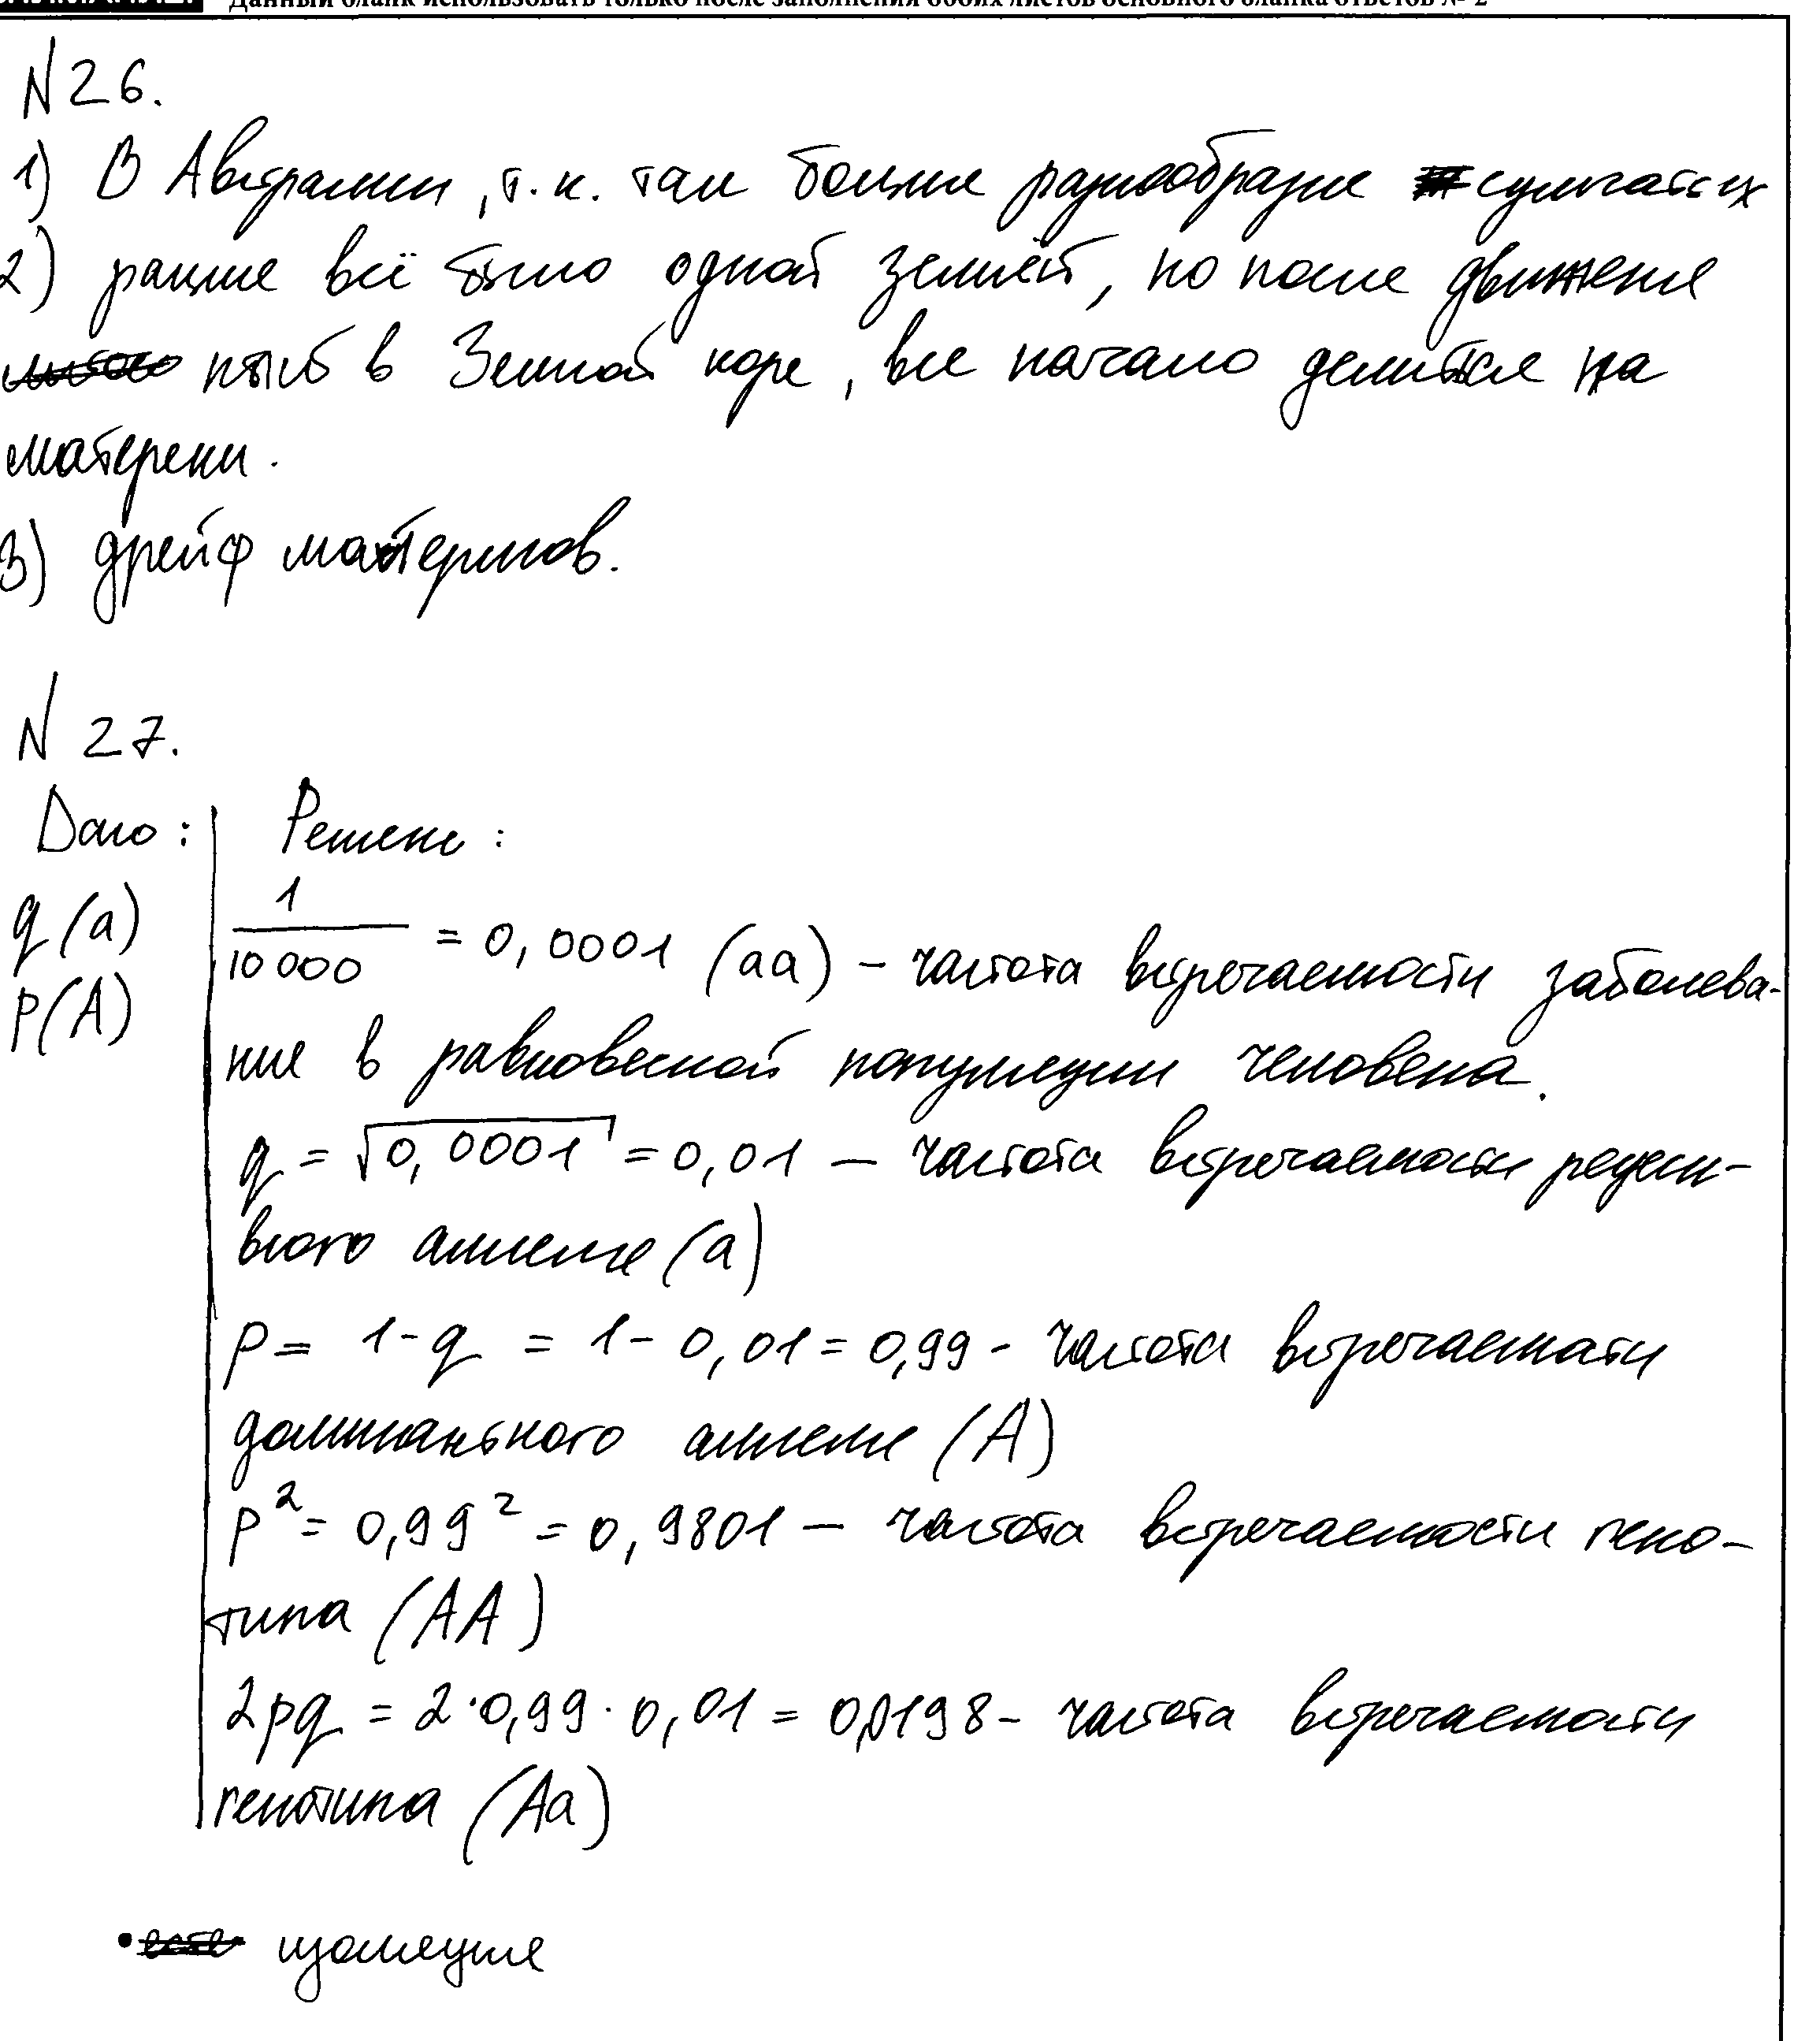 Данный бланк использовать только после заполнения обоих листов основного бланка ответов № 2
N26.
1) В Австралии, т.к. там больше разнообразие сумчатых
2) раньше всё было одной землёй, но после движение
плыт в Земной коре, все начало делится на
материки.
3) дрейф материков.
N 27.
Дано: Решение:
q(a)
p(A)
1/10 000 = 0,0001 (aa) – частота встречаемости заболева-
ние в равновесной популяции человека.
q = √0,0001 = 0,01 – частота встречаемости рецесси-
вного аллеля (a)
p = 1-q = 1 - 0,01 = 0,99 - частота встречаемости
доминантного аллеля (A)
p² = 0,99² = 0,9801 – частота встречаемости гено-
типа (AA)
2pq = 2·0,99·0,01 = 0,0198 - частота встречаемости
генотипа (Aa)
• изоляция